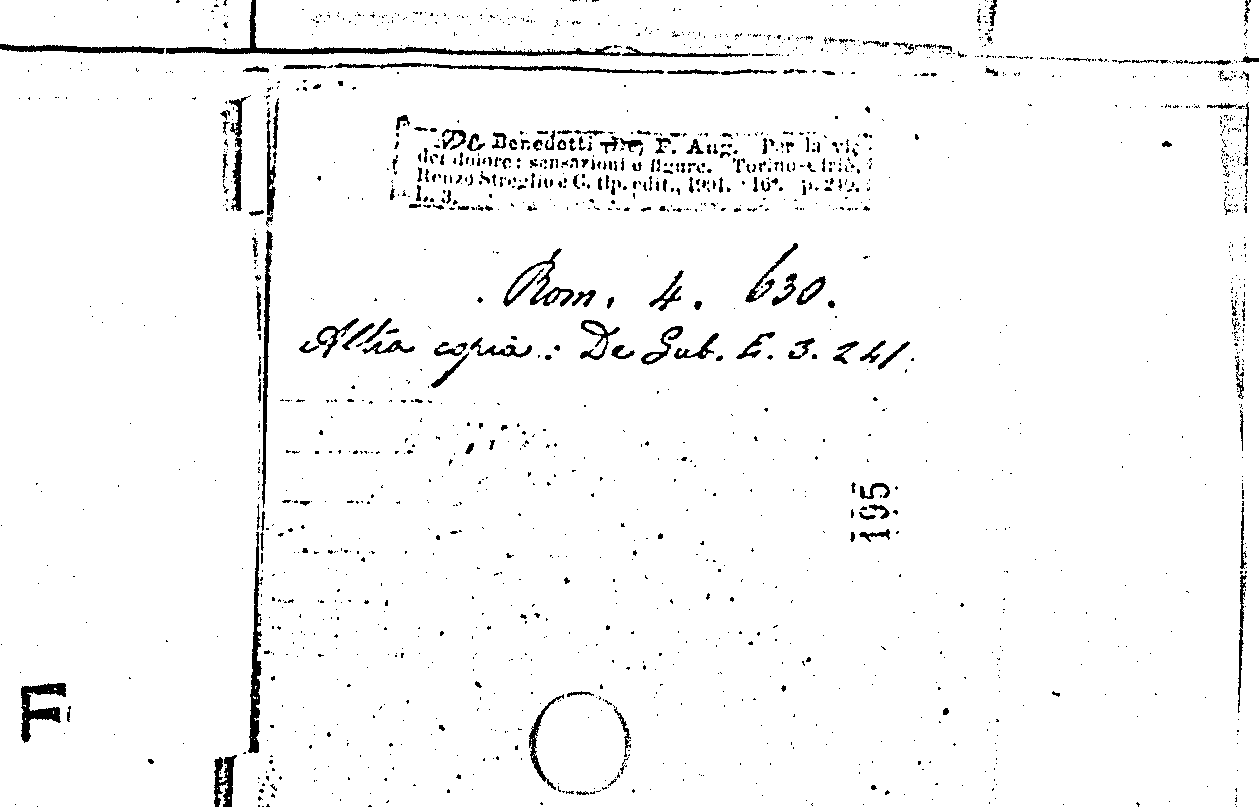 De Benedotti (De) F. Aug. Per la vie
del dolore: sensazioni e figure. Torino-Ciriè,
Renzo Streglio e C. tip. edit., 1901. 16°. p. 212.
L. 3.
Rom. 4. 630.
Altra copia: De Gub. E. 3. 241.
195